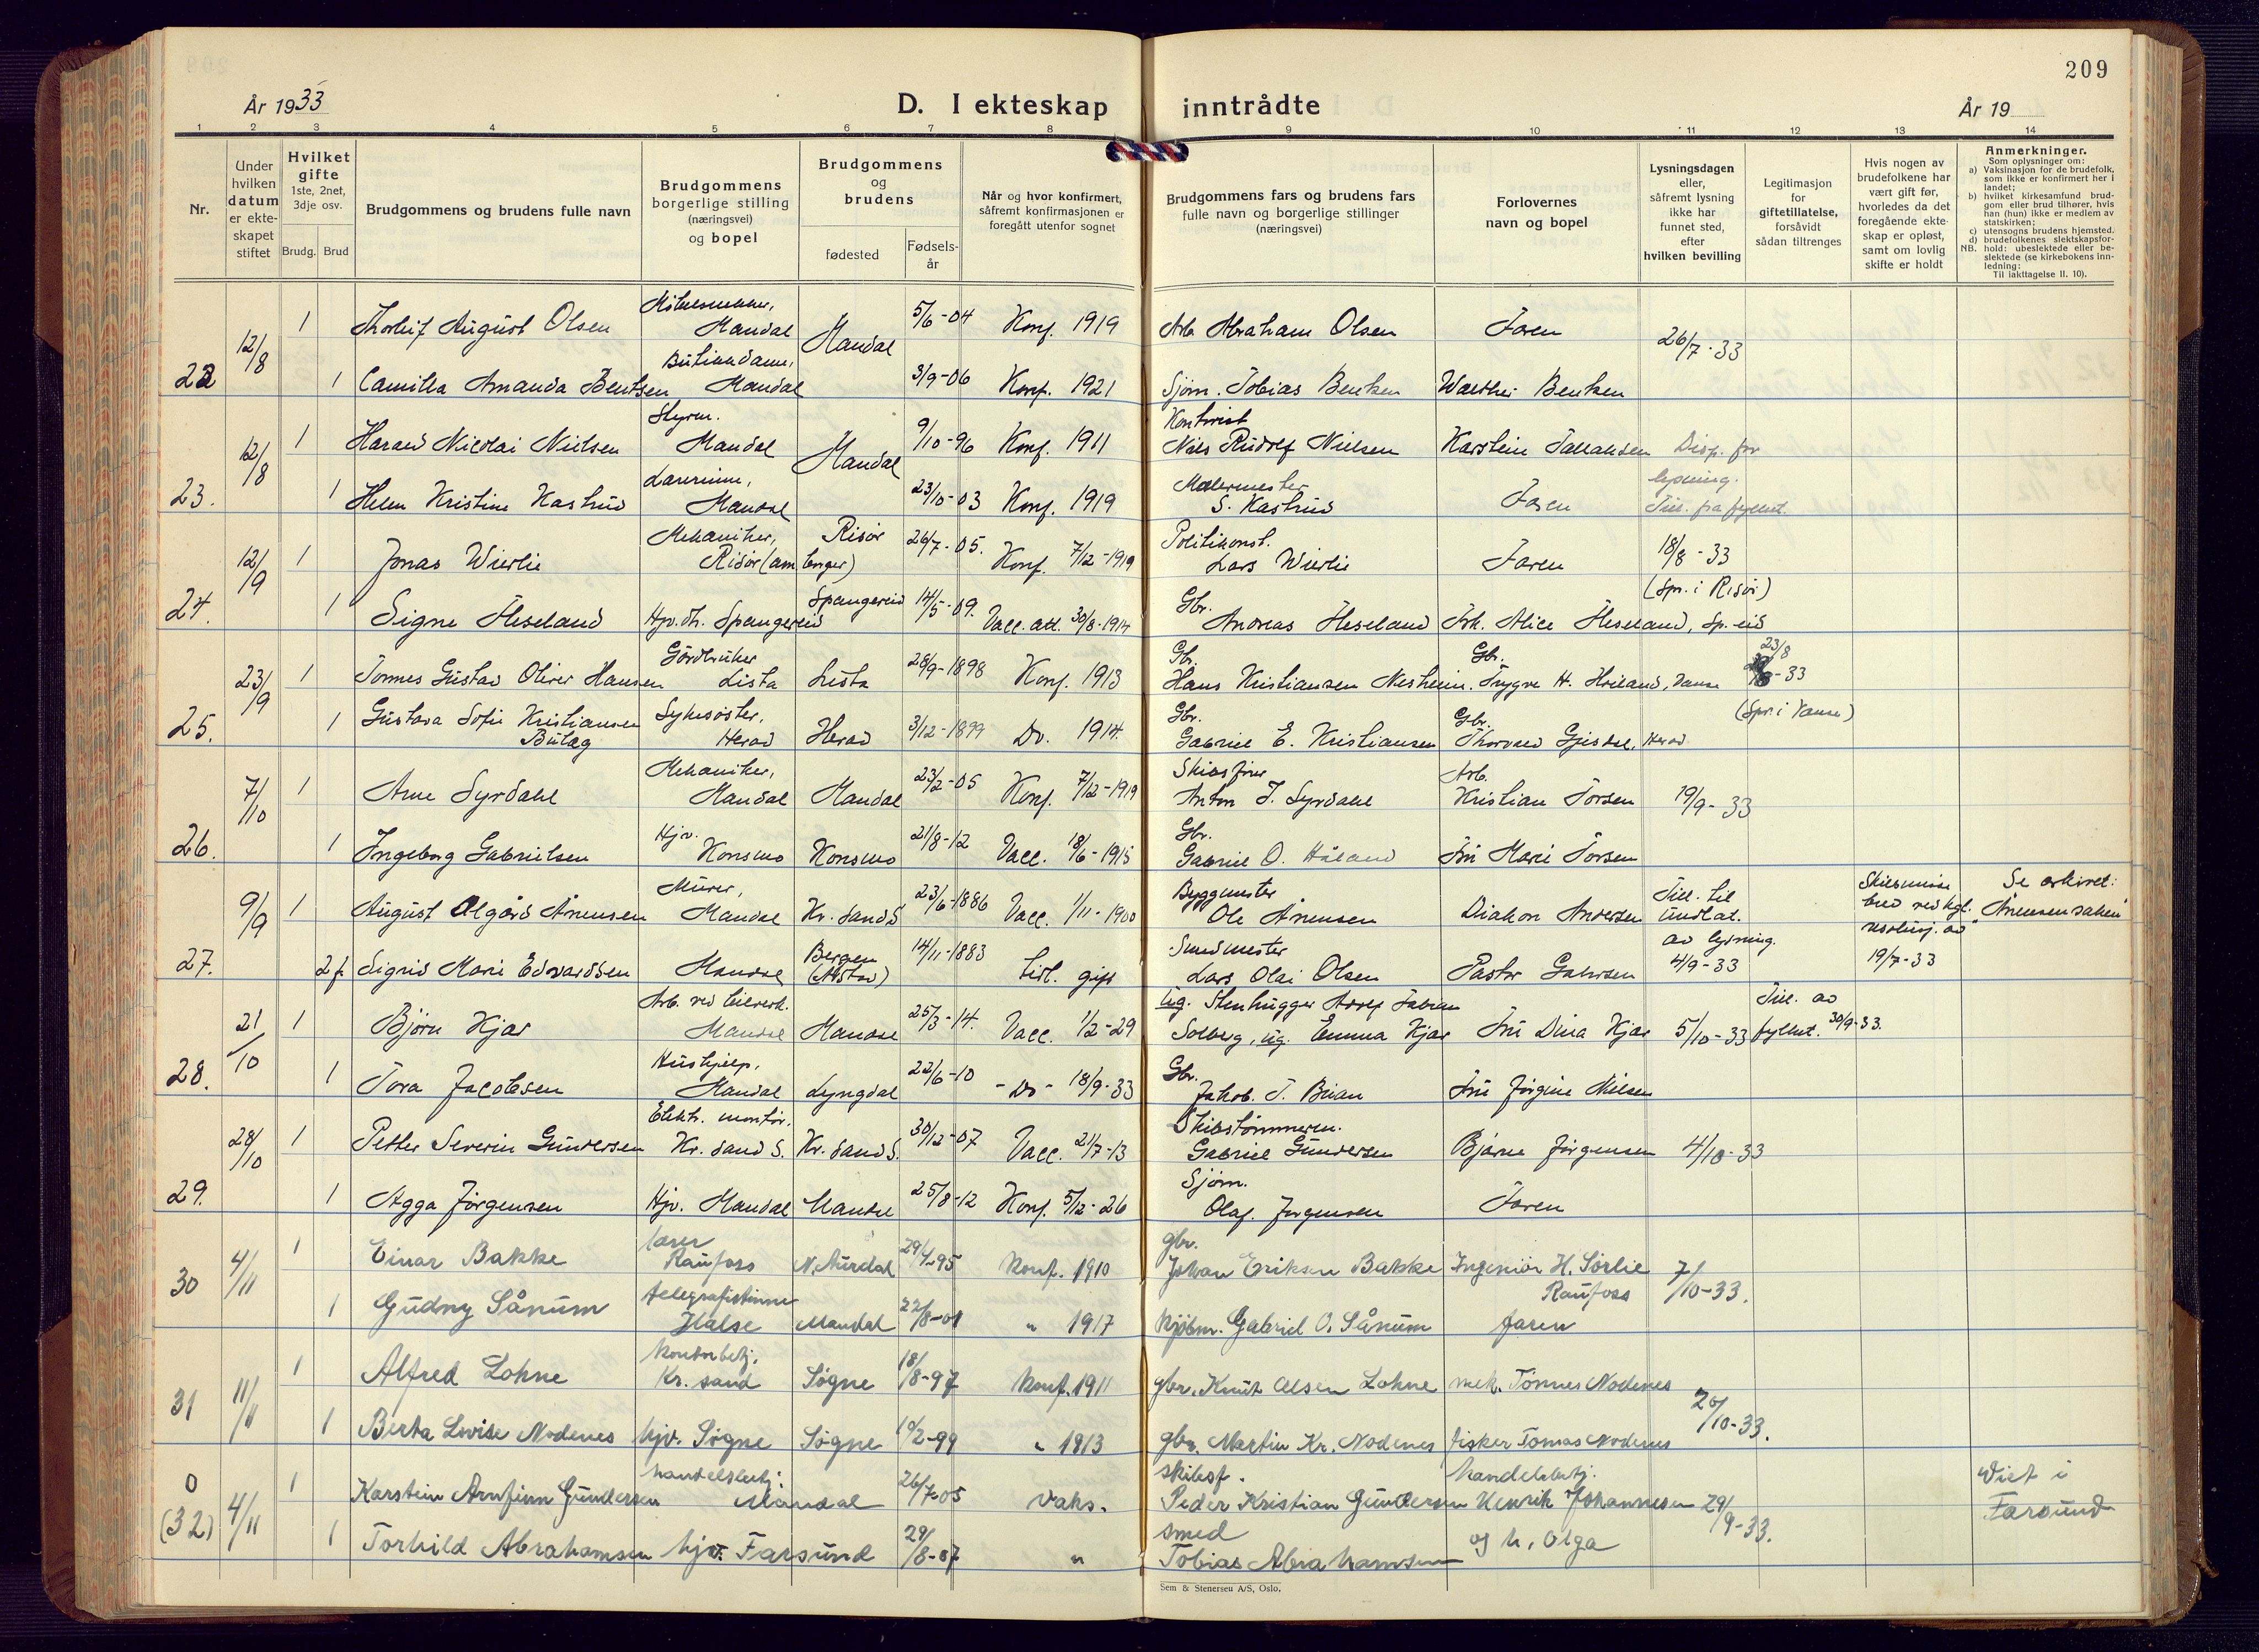 209
År 1933
D. I ekteskap inntrådte
År 19
1 2 3 4 5 6 7 8 9 10 11 12 13 14
Nr.
Under hvilken datum er ekteskapet stiftet
Hvilket gifte
1ste, 2net, 3dje osv.
Brudg. Brud
Brudgommens og brudens fulle navn
Brudgommens borgerlige stilling (næringsvei) og bopel
Brudgommens og brudens
fødested
Fødsels-år
Når og hvor konfirmert, såfremt konfirmasjonen er foregått utenfor sognet
Brudgommens fars og brudens fars fulle navn og borgerlige stillinger (næringsvei)
Forlovernes navn og bopel
Lysningsdagen eller, såfremt lysning ikke har funnet sted, efter hvilken bevilling
Legitimasjon for giftetillatelse, forsåvidt sådan tiltrenges
Hvis nogen av brudefolkene har vært gift før, hvorledes da det foregående ekteskap er opløst, samt om lovlig skifte er holdt
Anmerkninger.
Som oplysninger om:
a) Vaksinasjon for de brudefolk, som ikke er konfirmert her i landet;
b) hvilket kirkesamfund brudgom eller brud tilhører, hvis han (hun) ikke er medlem av statskirken;
c) utensogns brudens hjemsted.
d) brudefolkenes slektskapsforhold: ubeslektede eller beslektede (se kirkebokens innledning:
NB.
Til iakttagelse II. 10).
22 12/8 1 Thorleif August Olsen Mandal Mandal 5/6-04 Konf. 1919 Arb. Abraham Olsen Faren 26/7-33
1 Camilla Amanda Bentsen Butikkdame, Mandal 3/9-06 Konf. 1921 Sjøm. Tobias Bentsen Walther Bentsen
23. 12/8 1 Harald Nicolai Nielsen Styrm. Mandal Mandal 9/10-96 Konf. 1911 Kontorist Nils Rudolf Nielsen Karstein Tallaksen Disp. for lysning. Till. fra fylket.
1 Helen Kristine Kastrud Lærerinne, Mandal 23/10-03 Konf. 1919 Malermester S. Kastrud Faren
24. 12/9 1 Jonas Wierlie Mekaniker, Risør (am. borger) Risør 26/7-05. Konf. 7/12-1919 Politikonst. Lars Wierlie Faren 18/8-33 (Spr. i Risør)
1 Signe Heseland Hjv. dh. Spangereid Spangereid 14/5-09. Vacc. att. 30/8-1914 Gbr. Andreas Heseland Frk. Alice Heseland, Sp.eid
25. 23/9 1 Tønnes Gustav Oliver Hansen Gårdbruker Lista Lista 28/9-1898 Konf. 1913 Gbr. Hans Kristiansen Nesheim. Gbr. Trygve H. Høiland, Vanse 23/8-33 (Spr. i Vanse)
1 Gustava Sofie Kristiansen Butag Sykesøster, Herad Herad 3/12-1899 Do. 1914. Gbr. Gabriel E. Kristiansen Gbr. Thorvald Gjisdal, Herad
26. 7/10 1 Arne Syrdahl Mekaniker, Mandal Mandal 23/2-05 Konf. 7/12-1919 Skibsfører Anton J. Syrdahl Arb. Kristian Torsen 19/9-33
1 Ingeborg Gabrielsen Hjv. Konsmo Konsmo 21/8-12 Vacc. 18/6-1915 Gbr. Gabriel O. Håland Fru Marie Torsen
27. 9/9 1 August Olgård Ånensen Murer, Mandal Kr.sand S 23/6-1886 Vacc. 1/11-1900 Byggmester Ole Ånensen Diakon Andersen Till. til undlat. av lysning. 4/9-33 Skilsmisse bev. ved kgl. resolusj. av 19/7-33 Se arkivet: "Ånensensaken"
2 f. Sigrid Marie Edvardsen Mandal Bergen (Årstad) 14/11-1883 tidl. gift Smedmester Lars Olai Olsen Pastor Gabrsen
28. 21/10 1 Bjørn Kjær Mandal Mandal 25/3-14. Vacc. 1/2-29 ug. Stenhugger Adolf Fabian Solberg, ug. Emma Kjær Fru Dina Kjær 5/10-33 Till. av fylket. 30/9-33.
1 Tora Jacobsen Hushjelp, Mandal Lyngdal 22/6-10 -Do- 18/9-33 Gbr. Jakob. T. Brian Fru Jørgine Nilsen
29. 28/10 1 Petter Severin Gundersen Elektr. montør. Kr. sand S. Kr. sand S. 30/12-07 Vacc. 21/7-13 Skibstømmerm. Gabriel Gundersen Bjarne Jørgensen 4/10-33
1 Agga Jørgensen Hjv. Mandal Mandal 25/8-12 Konf. 5/12-26 Sjøm. Olaf. Jørgensen Faren
30 4/11 1 Einar Bakke lærer Raufoss N. Aurdal 29/4-95 Konf. 1910 gbr. Johan Eriksen Bakke Ingeniør H. Sørlie Raufoss 7/10-33.
1 Gudny Sånum telegrafistinne Halse Mandal 22/8-01 " 1917 Kjøbm. Gabriel O. Sånum faren
31 11/11 1 Alfred Lohne kontorbetj. Kr. sand Søgne 18/8-97 Konf. 1911 gbr. Knut Olsen Lohne mek. Tønnes Nodenes 20/10-33.
1 Berta Lovise Nodenes hjv. Søgne Søgne 10/2-99 " 1913 gbr. Martin Kr. Nodenes fisker Tomas Nodenes
0 (32) 4/11 1 Karstein Arnfinn Gundersen handelsbetj. Mandal 26/7-05 Vaks. skibsf. Peder Kristian Gundersen handelsbetj. Henrik Johannesen og h. Olga 29/9-33. Viet i Farsund
1 Torhild Abrahamsen hjv. Farsund 29/8-07 " smed Tobias Abrahamsen
Sem & Stenersen A/S, Oslo.